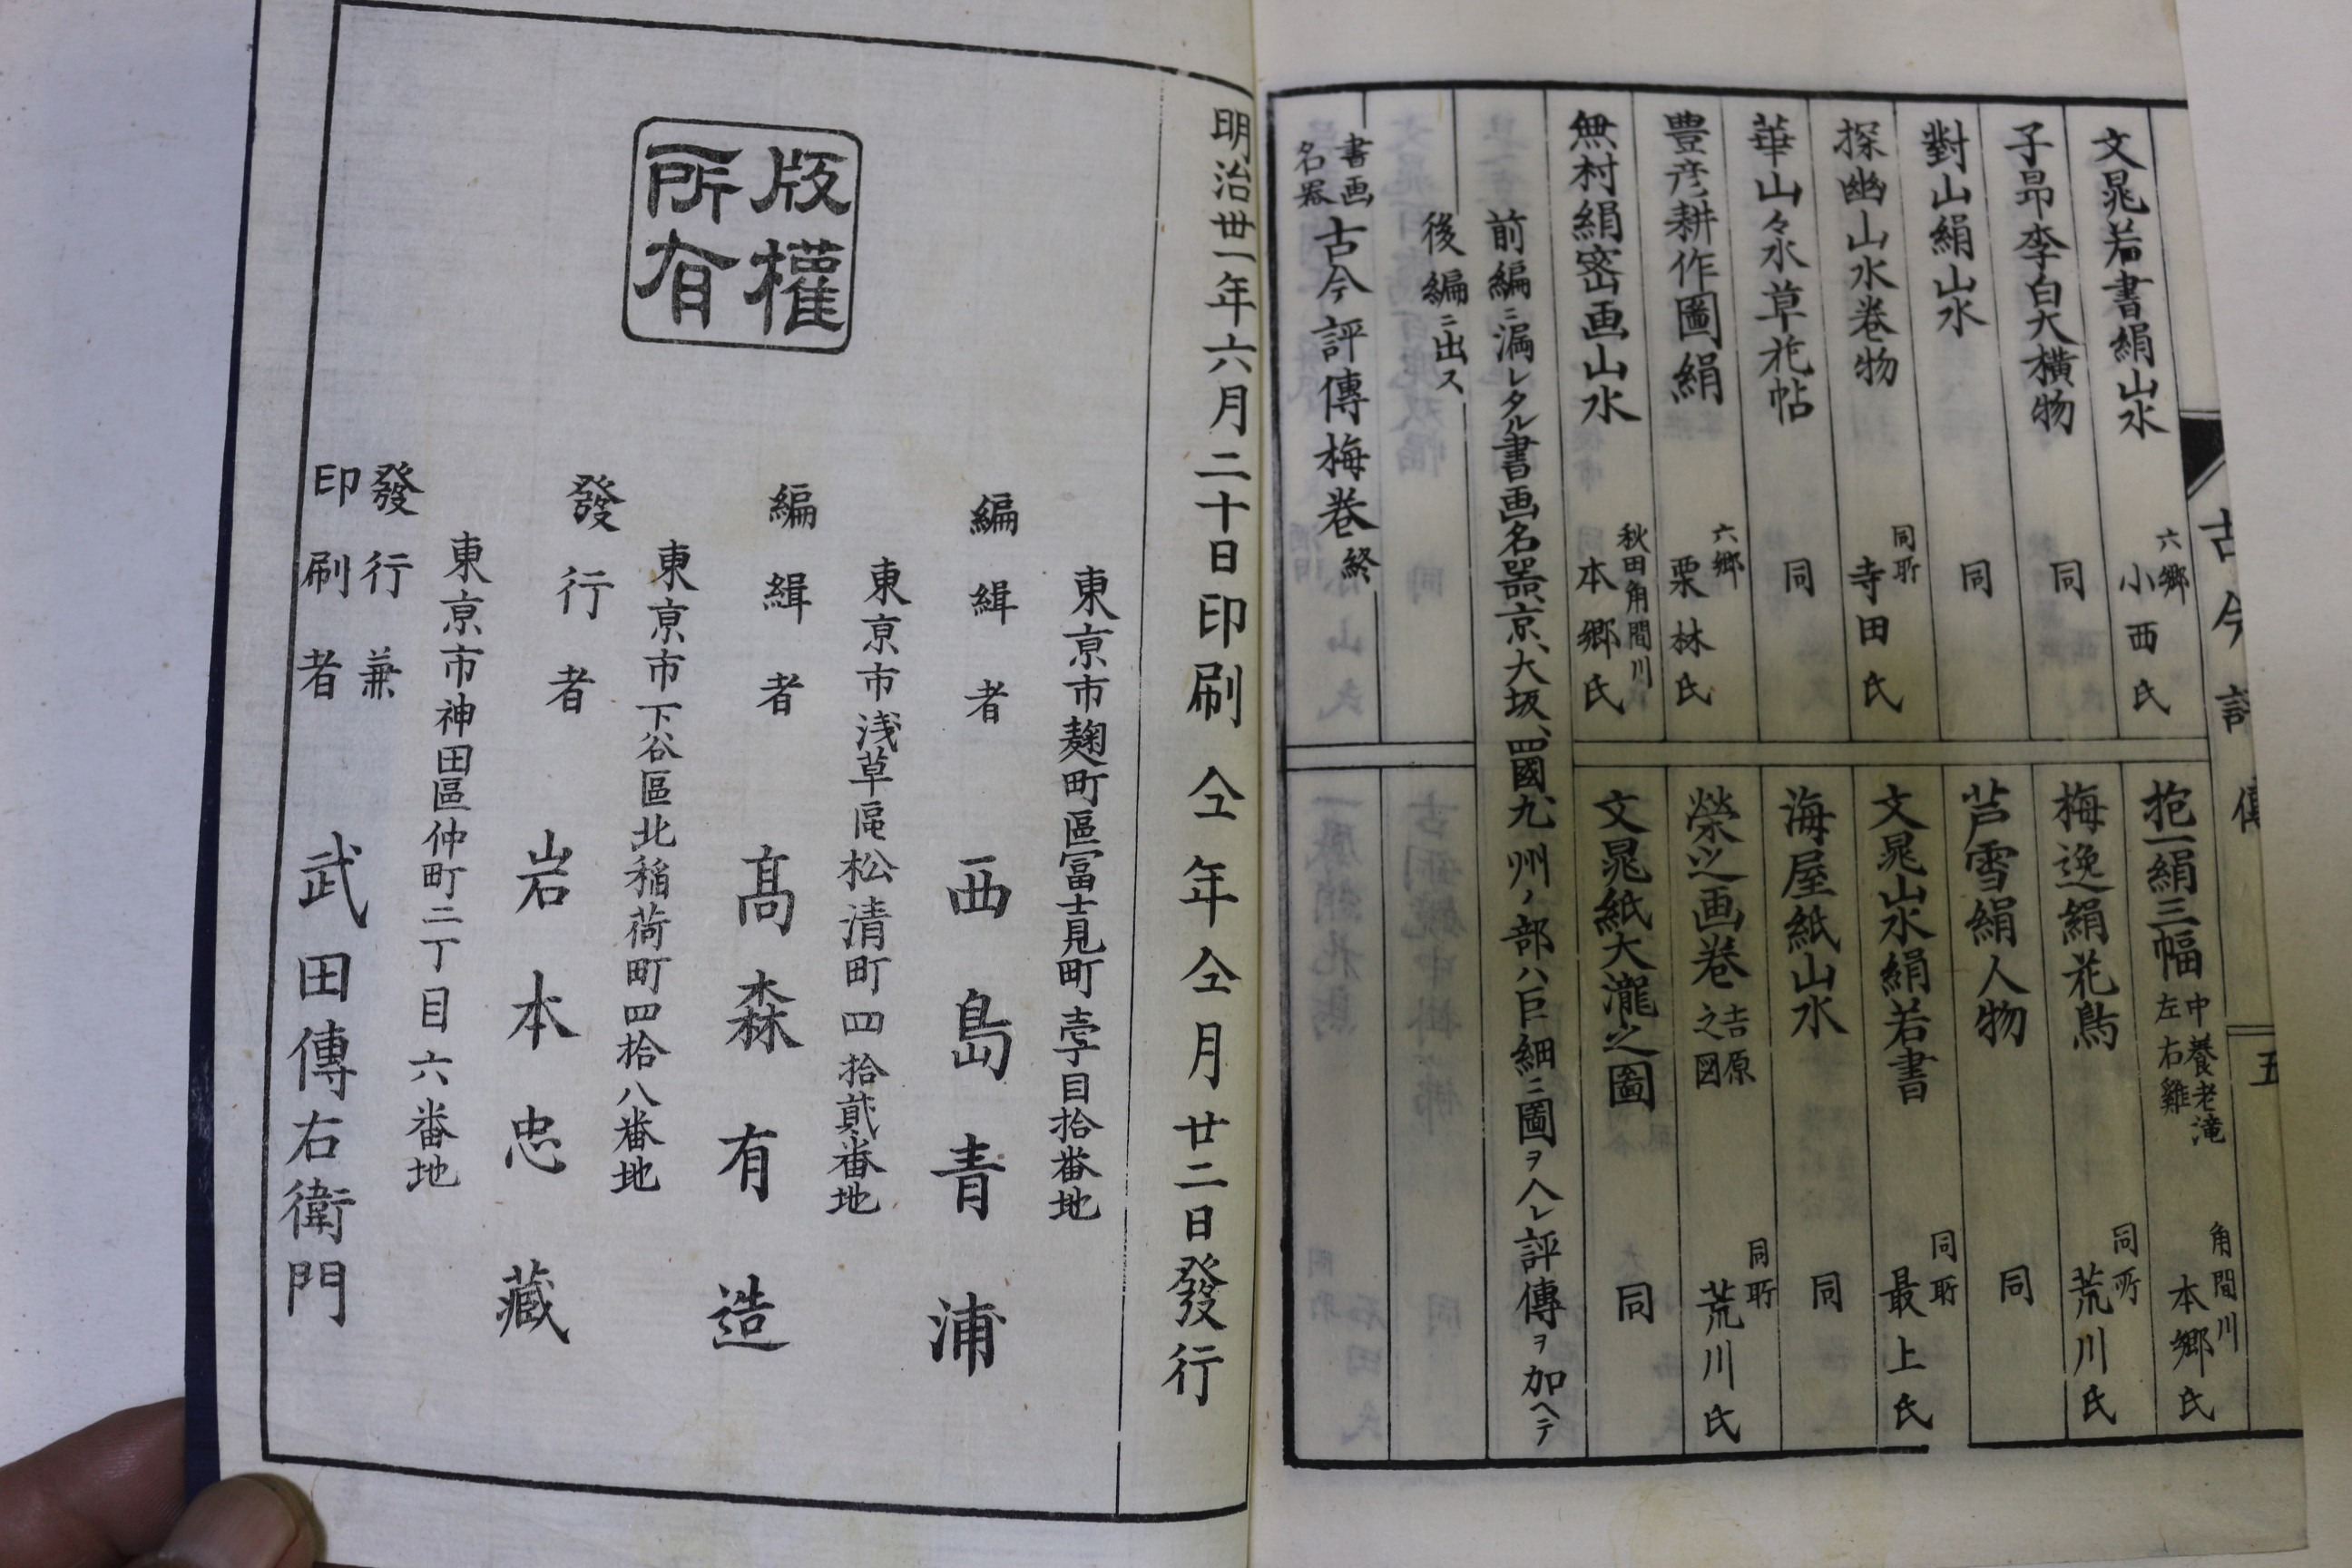 古今評傳
五
文晁若書絹山水 六郷 小西氏
子昂李白大横物 同
對山絹山水 同
探幽山水巻物 同所 寺田氏
華山々水草花帖 同
豊彦耕作圖絹 六郷 栗林氏
無村絹密画山水 秋田角間川 本郷氏
抱一絹三幅 中養老滝 左右雞 角間川 本郷氏
梅逸絹花鳥 同所 荒川氏
芦雪絹人物 同
文晁山水絹若書 同所 最上氏
海屋紙山水 同
榮之画巻 吉原之図 同所 荒川氏
文晁紙大瀧之圖 同
前編ニ漏レタル書画名器京、大坂、四國九州ノ部ハ巨細ニ圖ヲ入レ評傳ヲ加ヘテ
後編ニ出ス
書画名器 古今評傳梅巻終
明治卅一年六月二十日印刷 仝年仝月廿二日發行
版權所有
東京市麹町區冨士見町壱丁目拾番地
編緝者 西島青浦
東京市浅草區松清町四拾貮番地
編緝者 髙森有造
東京市下谷區北稲荷町四拾八番地
發行者 岩本忠藏
東京市神田區仲町二丁目六番地
發行兼印刷者 武田傳右衛門